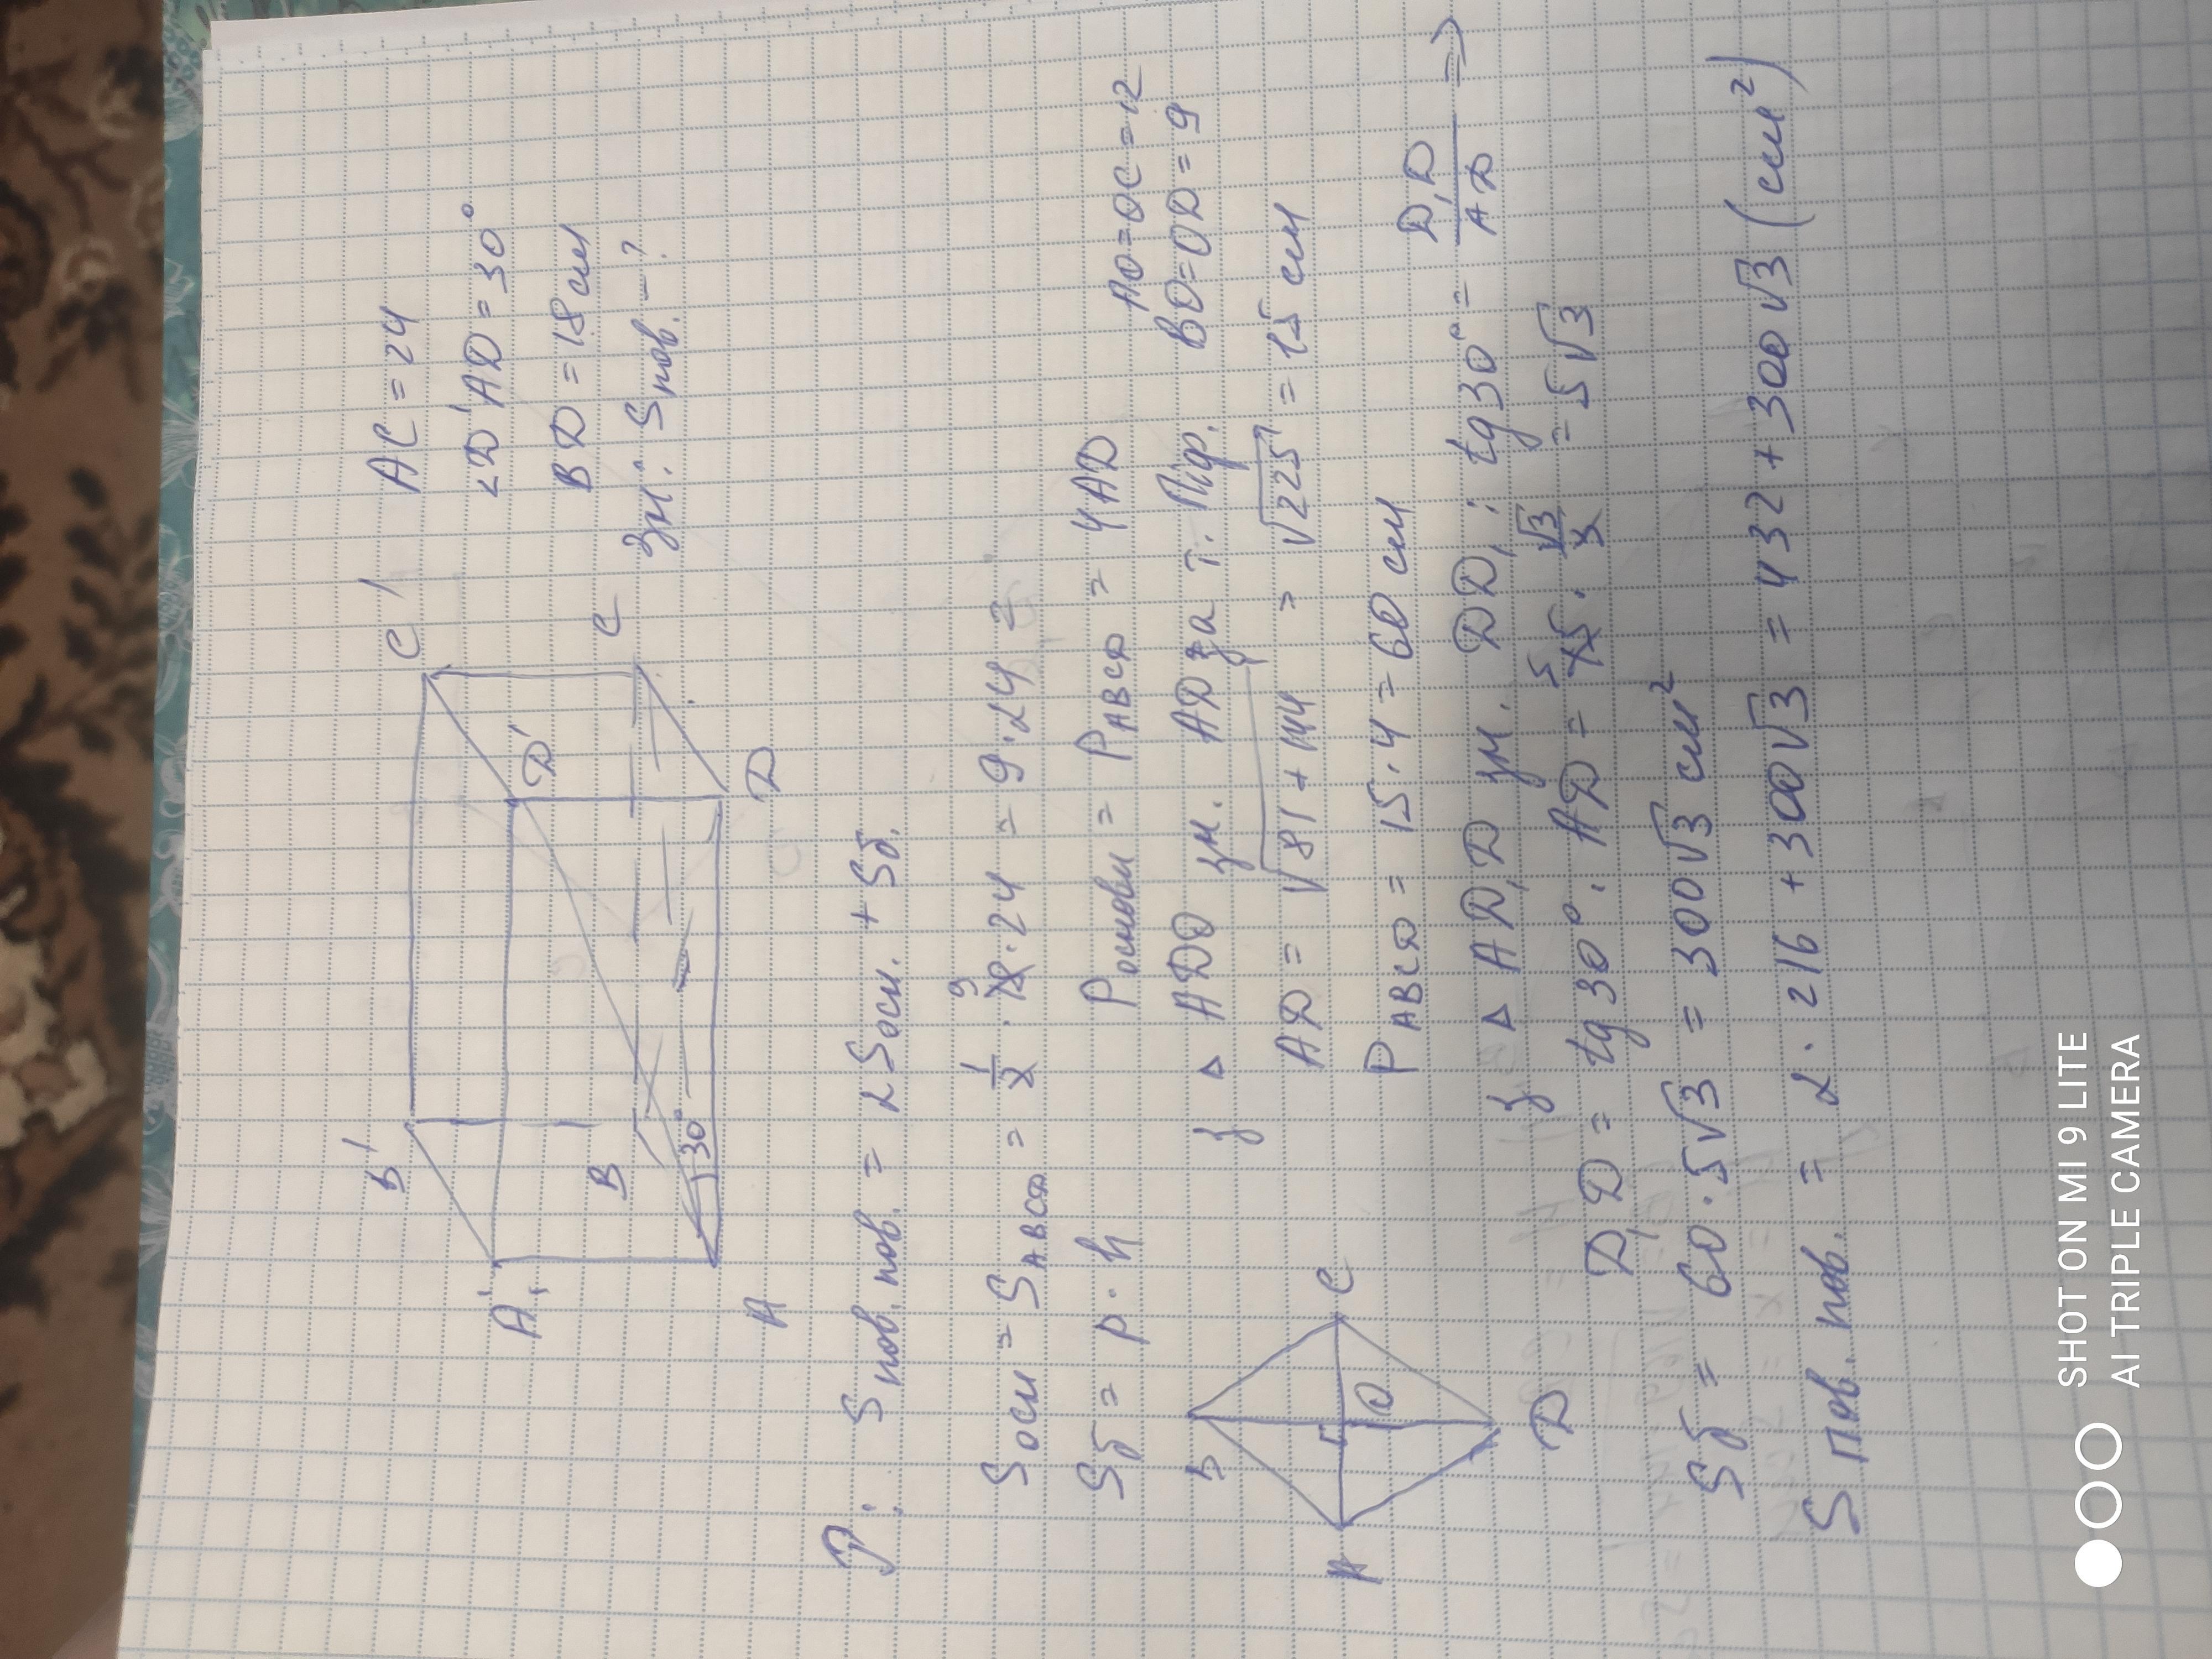 AC = 24
∠D'AD = 30°
BD = 18 см
Зн.: Sпов. - ?
B'
C'
A'₁
D'
B
C
30°
A
D
Р: Sпов. пов. = 2Sосн. + Sб.
Sосн = SABCD = 1/2 · 18 9 · 24 = 9 · 24 =
Sб = P · h Pоснови = PABCD = 4AD
AO = OC = 12
з Δ ADO зн. AD за т. Піф. BO = OD = 9
AD = √81 + 144 = √225 = 15 см
PABCD = 15 · 4 = 60 см
B
A
C
O
D
з Δ AD₁D зн. DD₁: tg30° = D₁D/AD =>
D₁D = tg 30° · AD = 15 5 · √3/3 = 5√3
Sб = 60 · 5√3 = 300√3 см²
Sпов. пов. = 2 · 216 + 300√3 = 432 + 300√3 (см²)
SHOT ON MI 9 LITE
AI TRIPLE CAMERA